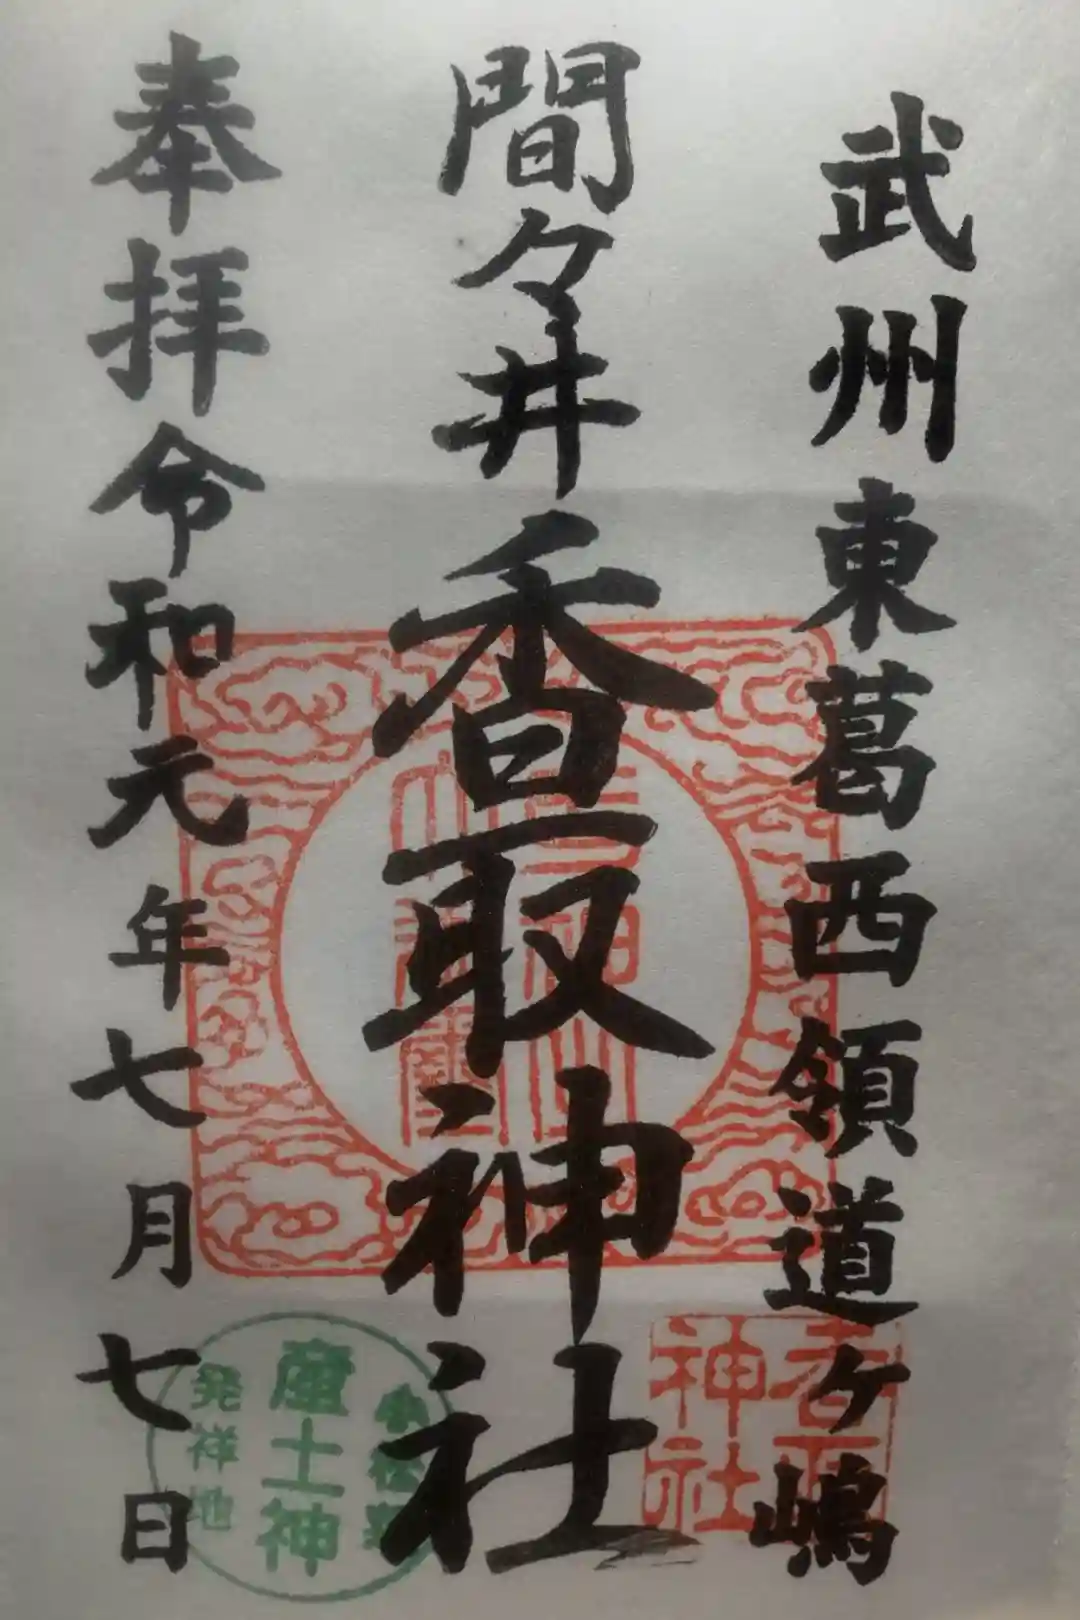 武州東葛西領道ケ嶋
間々井香取神社
奉拝令和元年七月七日
香取
神社
小松菜
産土神
発祥地